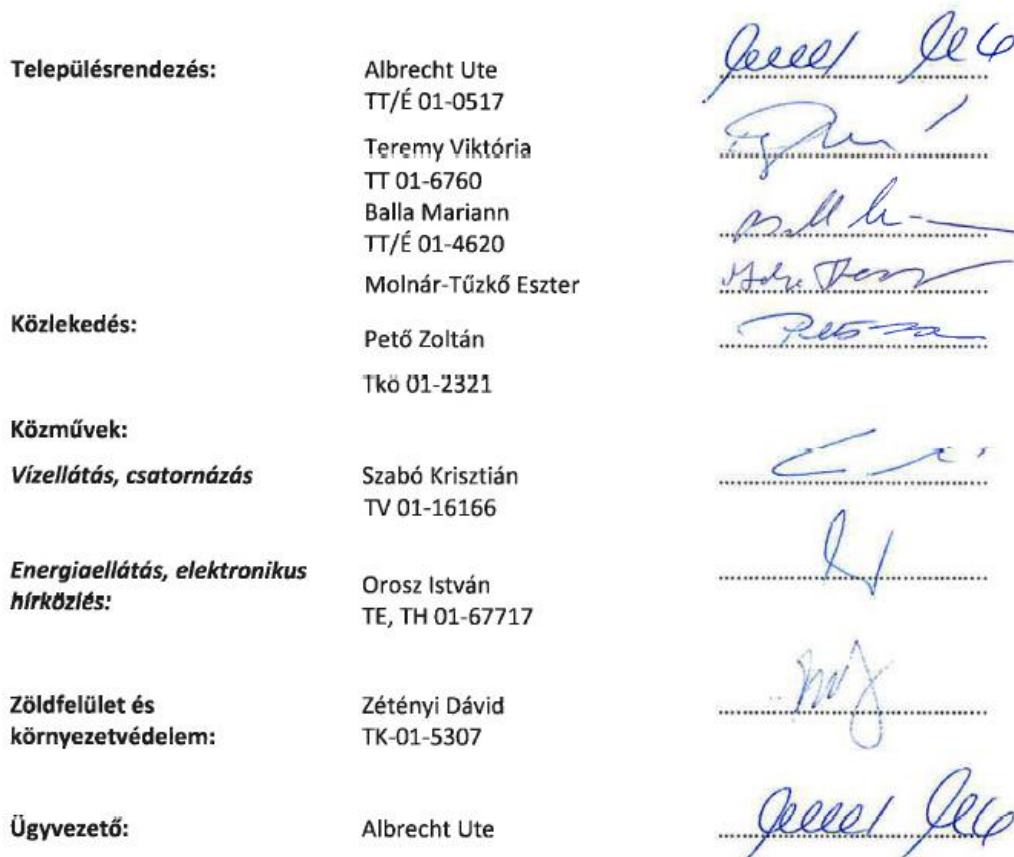 Településrendezés: Albrecht Ute
TT/É 01-0517
Teremy Viktória
TT 01-6760
Balla Mariann
TT/É 01-4620
Molnár-Tűzkő Eszter
Közlekedés: Pető Zoltán
Tkö 01-2321
Közművek:
Vízellátás, csatornázás Szabó Krisztián
TV 01-16166
Energiaellátás, elektronikus
hírközlés: Orosz István
TE, TH 01-67717
Zöldfelület és Zétényi Dávid
környezetvédelem: TK-01-5307
Ügyvezető: Albrecht Ute